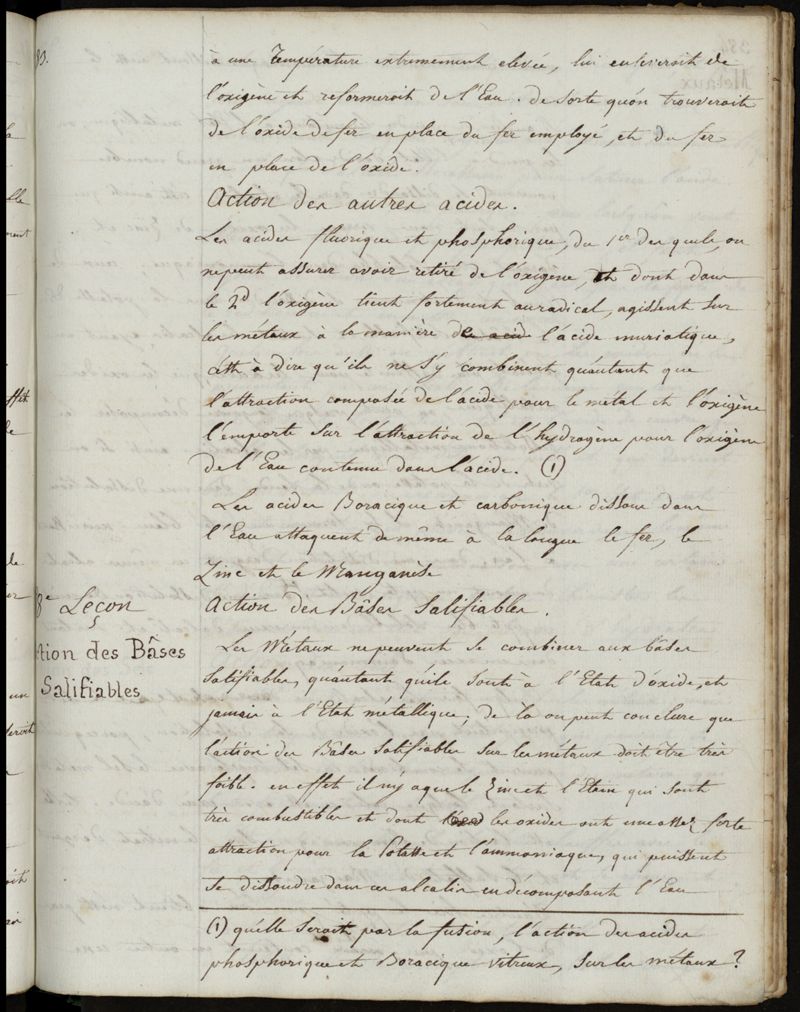 83.
à une température extremement elevée, lui enleveroit de
l'oxigène et reformeroit de l'Eau. de sorte qu'on trouveroit
de l'oxide de fer en place du fer employé, et du fer
en place de l'oxide.
Action des autres acides.
Les acides fluorique et phosphorique, du 1er des quels, on
ne peut assurer avoir retiré de l'oxigène, et dont dans
le 2d l'oxigène tient fortement au radical, agissent sur
les métaux à la manière de acid l'acide muriatique,
c'est à dire qu'ils ne s'y combinent qu'autant que
l'attraction composée de l'acide pour le métal et l'oxigène
l'emporte sur l'attraction de l'hydrogène pour l'oxigène
de l'Eau contenue dans l'acide. (1)
Les acides Boracique et carbonique dissous dans
l'Eau attaquent de même à la longue le fer, le
Zinc et le Manganèse
8e Leçon
Action des Bâses Salifiables.
ction des Bâses
Salifiables
Les Métaux ne peuvent se combiner aux bâses
salifiables, qu'autant qu'ils sont à l'Etat d'oxide, et
jamais à l'Etat métallique; de la on peut conclure que
l'action des Bâses Salifiables sur les métaux doit être très
foible. en effet il n'y a que le Zinc et l'Etain qui sont
très combustibles et dont les oxides ont une assez forte
attraction pour la Potasse et l'ammoniaque, qui puissent
se dissoudre dans ces alcalis en décomposant l'Eau
(1) quelle seroit par la fusion, l'action des acides
phosphorique et Boracique vitreux, sur les métaux?